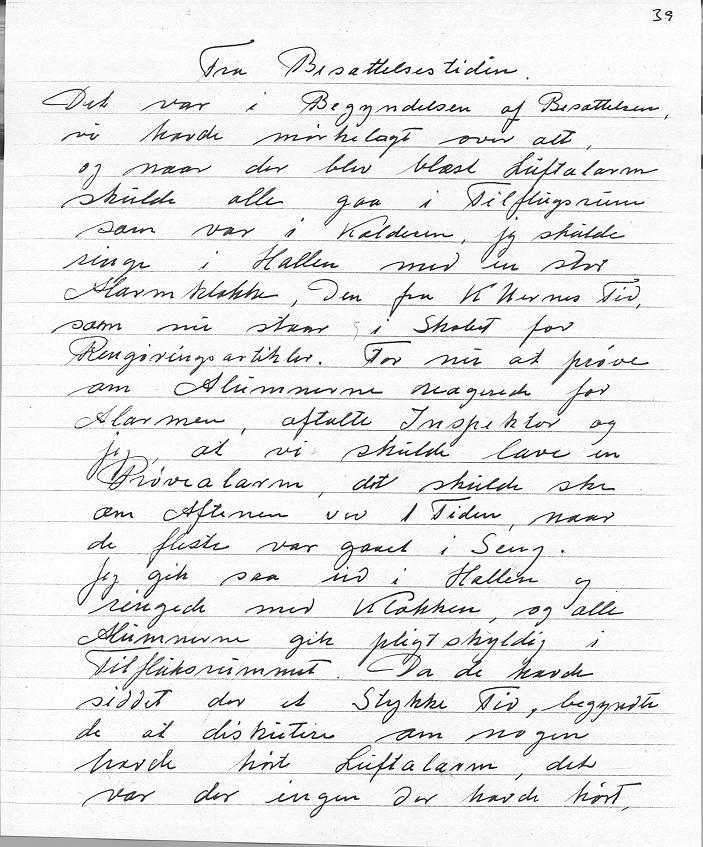 39
Fra Besættelsestiden.
Det var i Begyndelsen af Besættelsen,
vi havde mørkelagt over alt,
og naar der blev blæst Luftalarm
skulde alle gaa i Tilflugsrum
som var i Kælderen, jeg skulde
ringe i Hallen med en stor
Alarmklokke, Den fra Kkernes Tid,
som nu staar i Skabet for
Rengøringsartikler. For nu at prøve
om Alumnerne reagerede for
Alarmen, aftalte Inspektor og
jeg, at vi skulde lave en
Prøvealarm, det skulde ske
om Aftenen ved 1 Tiden, naar
de fleste var gaaet i Seng.
Jeg gik saa ud i Hallen og
ringede med Klokken, og alle
Alumnerne gik pligtskyldig i
Tilfluksrummet. Da de havde
siddet der et Stykke Tid, begyndte
de at diskutere om nogen
havde hørt Luftalarm, det
var der ingen der havde hørt,